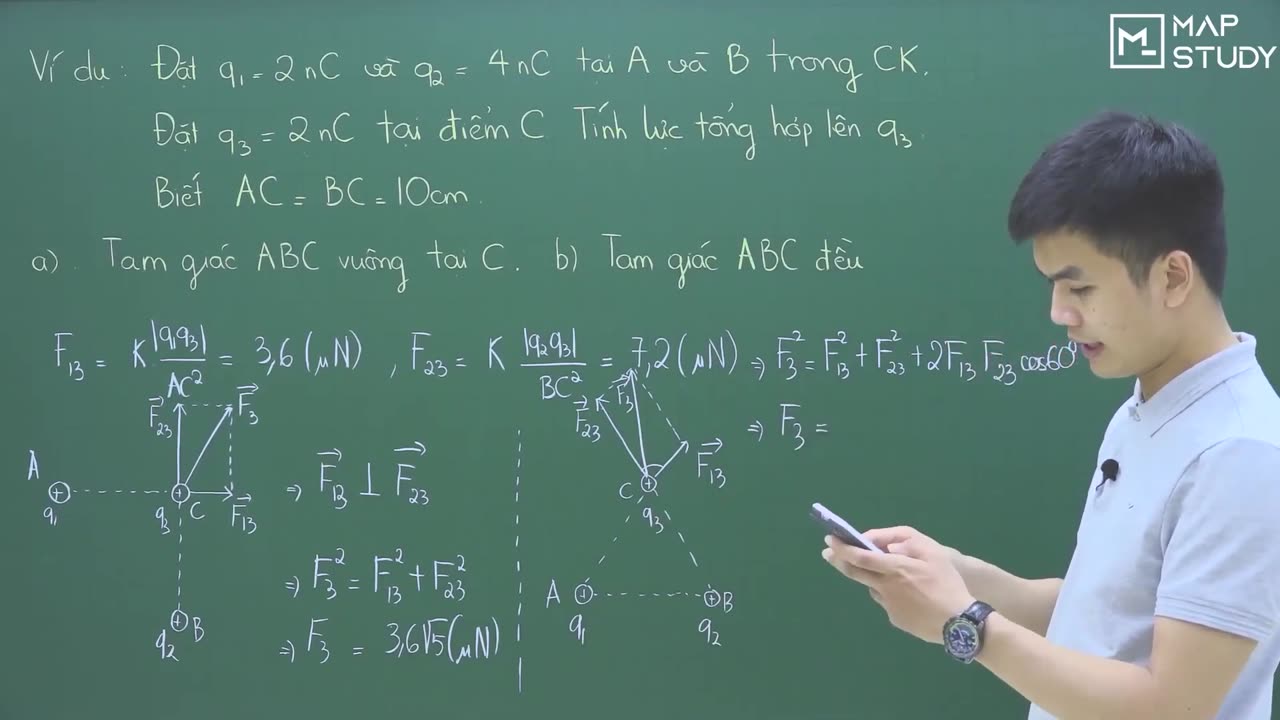 MAP
STUDY
Ví dụ : Đặt q₁ = 2 nC và q₂ = 4 nC tại A và B trong CK.
Đặt q₃ = 2 nC tại điểm C Tính lực tổng hợp lên q₃
Biết AC = BC = 10cm.
a) . Tam giác ABC vuông tại C. b) Tam giác ABC đều
F₁₃ = K |q₁q₃| / AC² = 3,6 (μN) , F₂₃ = K |q₂q₃| / BC² = 7,2 (μN) ⇒ F₃² = F₁₃² + F₂₃² + 2F₁₃ F₂₃ cos60⁰
⇒ F₃ =
F⃗₂₃ F⃗₃
A q₁ q₃ C F⃗₁₃
q₂ B
⇒ F⃗₁₃ ⊥ F⃗₂₃
⇒ F₃² = F₁₃² + F₂₃²
⇒ F₃ = 3,6√5 (μN)
F⃗₂₃ F⃗₃ F⃗₁₃
C q₃
A B
q₁ q₂